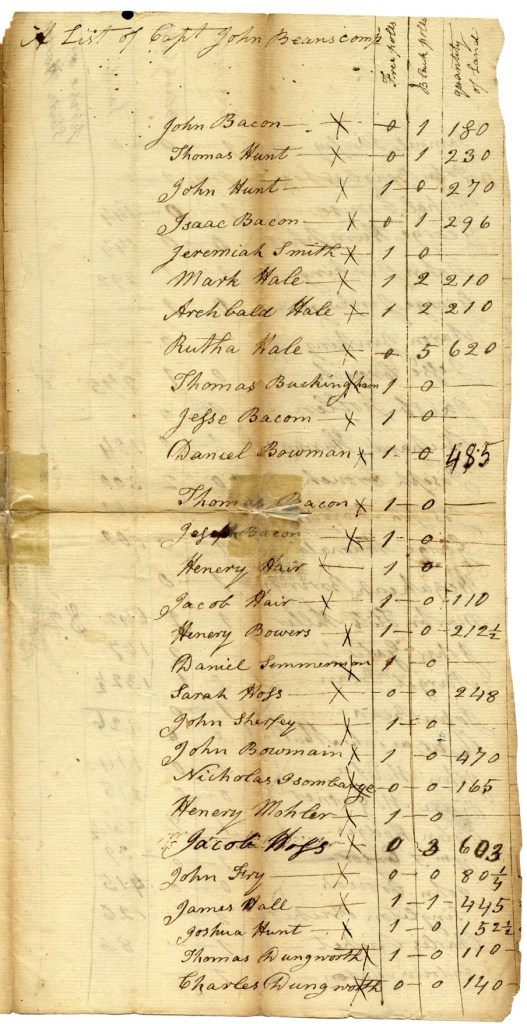 A List of Capt John Beanscomp
Free polls
Black polls
quantity of Land
John Bacon — X — 0 — 1 — 180
Thomas Hunt — X — 0 — 1 — 230
John Hunt — X — 1 — 0 — 270
Isaac Bacon — X — 0 — 1 — 296
Jeremiah Smith X — 1 — 0 —
Mark Hale — X — 1 — 2 — 210
Archbald Hale X — 1 — 2 — 210
Rutha Hale — X — 0 — 5 — 620
Thomas Buckingham X — 1 — 0 —
Jesse Bacom — X — 1 — 0 —
Daniel Bowman X — 1 — 0 — 485
Thomas Bacon X — 1 — 0 —
Joseph Bacon — X — 1 — 0 —
Henery Hair X — 1 — 0 —
Jacob Hair — X — 1 — 0 — 110
Henery Bowers X — 1 — 0 — 212½
Daniel Semmerman X — 1 — 0 —
Sarah Hoss — X — 0 — 0 — 248
John Sherfey — X — 1 — 0 —
John Bowmain X — 1 — 0 — 470
Nicholas Isombarge X — 0 — 0 — 165
Henery Mohler — X — 1 — 0 —
Jacob Hoss — X — 0 3 603
John Fry — X — 0 — 0 — 80¼
James Hall — X — 1 — 1 — 445
Joshua Hunt — X — 1 — 0 — 152½
Thomas Dungworth X — 1 — 0 — 110
Charles Dungworth X — 0 — 0 — 140